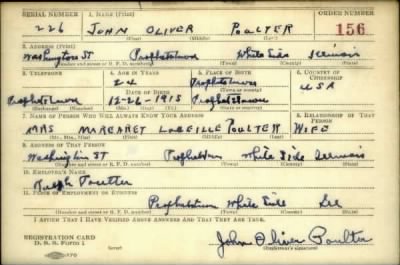 SERIAL NUMBER 1. NAME (Print) ORDER NUMBER
226 JOHN OLIVER POULTER 156
(First) (Middle) (Last)
2. ADDRESS (Print)
Washington St Prophetstown White Side Illinois
(Number and street or R. F. D. number) (Town) (County) (State)
3. TELEPHONE 4. AGE IN YEARS 5. PLACE OF BIRTH 6. COUNTRY OF CITIZENSHIP
Prophetstown
(Town or county)
DATE OF BIRTH USA
Prophetstown 12-26-1915 Prophetstown
(Exchange) (Number) (Mo.) (Day) (Yr.) (State or country)
7. NAME OF PERSON WHO WILL ALWAYS KNOW YOUR ADDRESS 8. RELATIONSHIP OF THAT PERSON
MRS MARGARET POULTER WIFE
(Mr., Mrs., Miss) (First) (Middle) (Last)
9. ADDRESS OF THAT PERSON
Washington ST Prophetstown White Side Illinois
(Number and street or R. F. D. number) (Town) (County) (State)
10. EMPLOYER'S NAME
Ralph Poulter
11. PLACE OF EMPLOYMENT OR BUSINESS
Prophetstown White Side Ill
(Number and street or R. F. D. number) (Town) (County) (State)
I AFFIRM THAT I HAVE VERIFIED ABOVE ANSWERS AND THAT THEY ARE TRUE.
REGISTRATION CARD
D. S. S. Form 1 John Oliver Poulter
(Registrant's signature)